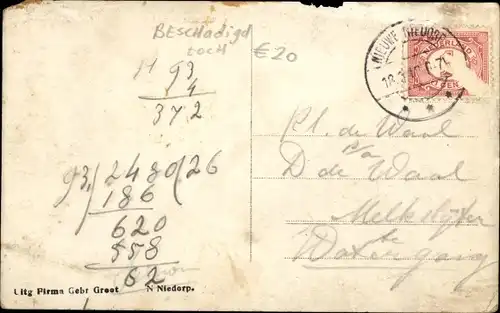 BESCHADIGD
TOCH
€20
93
4
372
93/2480/26
186
620
558
62
NIEUWE NIEDORP
NEDERLAND
Kl. de Waal
p/a
D de Waal
Melkslijter
te
Watergang
Uitg Firma Gebr Groot N Niedorp.